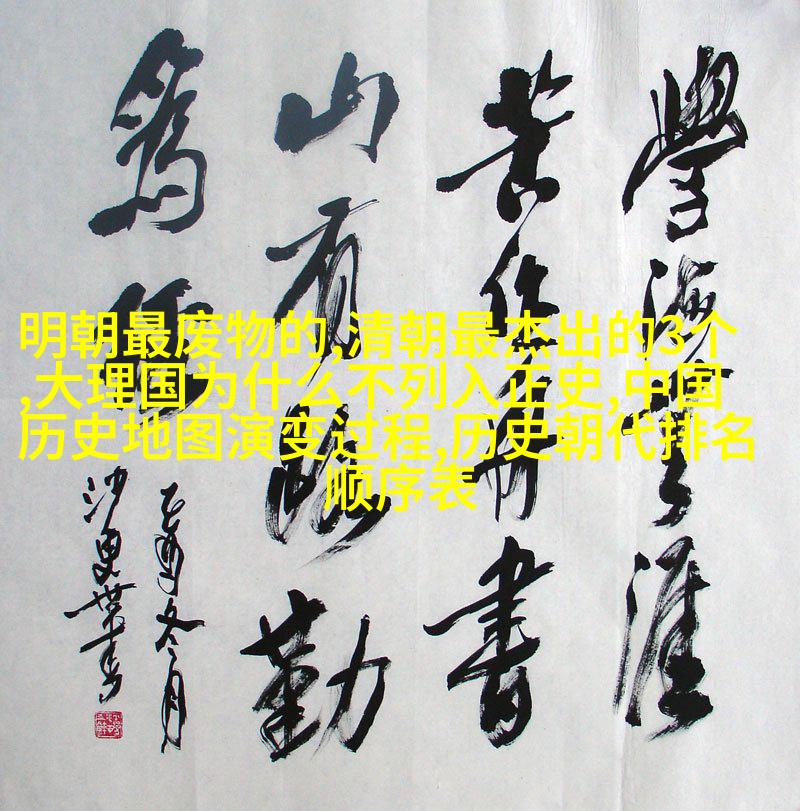 明朝最废物的,清朝最杰出的3个
,大理国为什么不列入正史,中国
历史地图演变过程,历史朝代排名
顺序表
學海無涯
苦作舟書
山有路勤
為徑
乙酉冬月
沙更世書